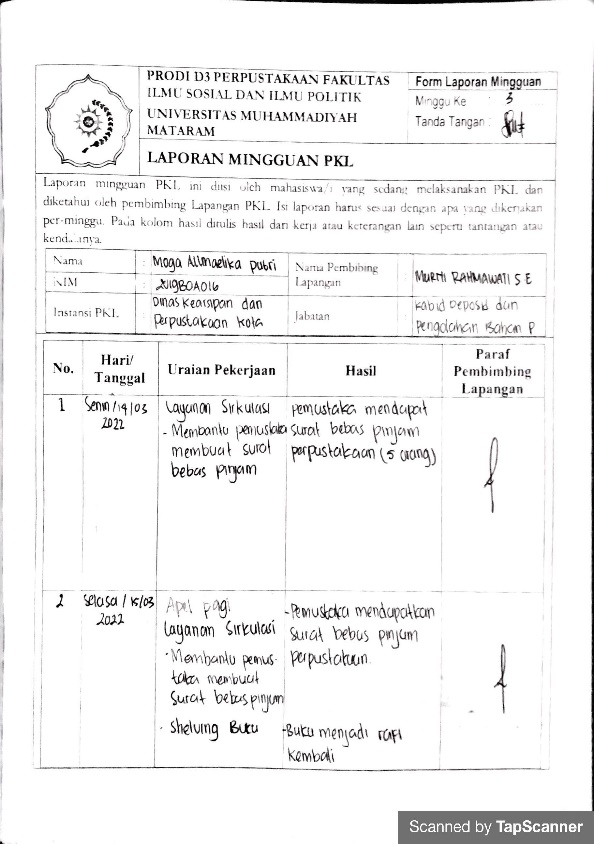 PRODI D3 PERPUSTAKAAN FAKULTAS
ILMU SOSIAL DAN ILMU POLITIK
UNIVERSITAS MUHAMMADIYAH
MATARAM
LAPORAN MINGGUAN PKL
Form Laporan Mingguan
Minggu Ke : 3
Tanda Tangan :
Laporan mingguan PKL ini diisi oleh mahasiswa/i yang sedang melaksanakan PKL dan
diketahui oleh pembimbing Lapangan PKL. Isi laporan harus sesuai dengan apa yang dikerjakan
per-minggu. Pada kolom hasil ditulis hasil dari kerja atau keterangan lain seperti tantangan atau
kendalanya.
Nama : Moga Allmaelika putri
NIM : 2019B0A016
Instansi PKL : Dinas Kearsipan dan
Perpustakaan Kota
Nama Pembibing
Lapangan : MURTI RAHMAWATI S E
Jabatan : Kabid Deposid dan
Pengolahan Bahan P
No. Hari/
Tanggal Uraian Pekerjaan Hasil Paraf
Pembimbing
Lapangan
1 Senin /14/03
2022
Layanan Sirkulasi
- Membantu pemustaka
membuat surat
bebas pinjam
pemustaka mendapat
surat bebas pinjam
perpustakaan (5 orang)
2 Selasa / 15/03
2022
Apel pagi
Layanan Sirkulasi
- Membantu pemus-
taka membuat
Surat bebas pinjam
- Shelving Buku
- Pemustaka mendapatkan
Surat bebas pinjam
perpustakaan.
- Buku menjadi rafi
kembali
Scanned by TapScanner